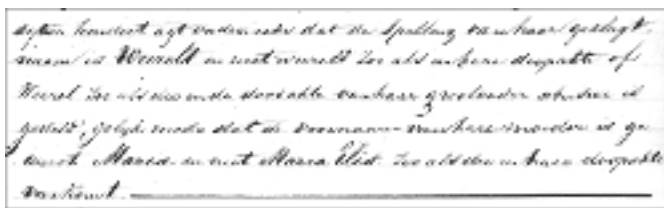 hondert agt en dat de Spelling van haar geslagt
naam is Weerelt en niet weerelt zoo als in hare doopakte of
Weerel zoo als die in de doodakte van haar grootvader is
gesteld, gelijk mede dat de voornaam van hare moeder is ge
weest Maria en niet Maria Elis zoo als die in hare doopakte
voorkomt